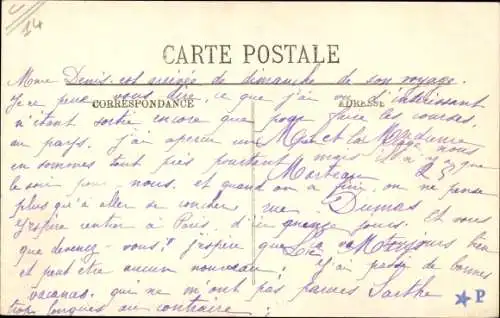 14
CARTE POSTALE
Mme Denis est arrivée de dimanche de son voyage.
Je ne peux vous dire, ce que j'ai vu d'intéressant
CORRESPONDANCE ADRESSE
n'étant sortie encore que pour faire les courses.
au pays, j'ai aperçu Mme
en sommes tout près pourtant mais il n'y a que
le soir pour nous, et quand on a fini, on ne pense
plus qu'à aller se coucher rue Dumas Et vous
J'espère rentrer à Paris, d'ici quinze jours.
que devenez-vous? J'espère que toujours bien
et peut être aucun nouveau; J'ai passé de bonnes
vacances, qui ne m'ont pas parues Sarthe
trop longues au contraire;
P